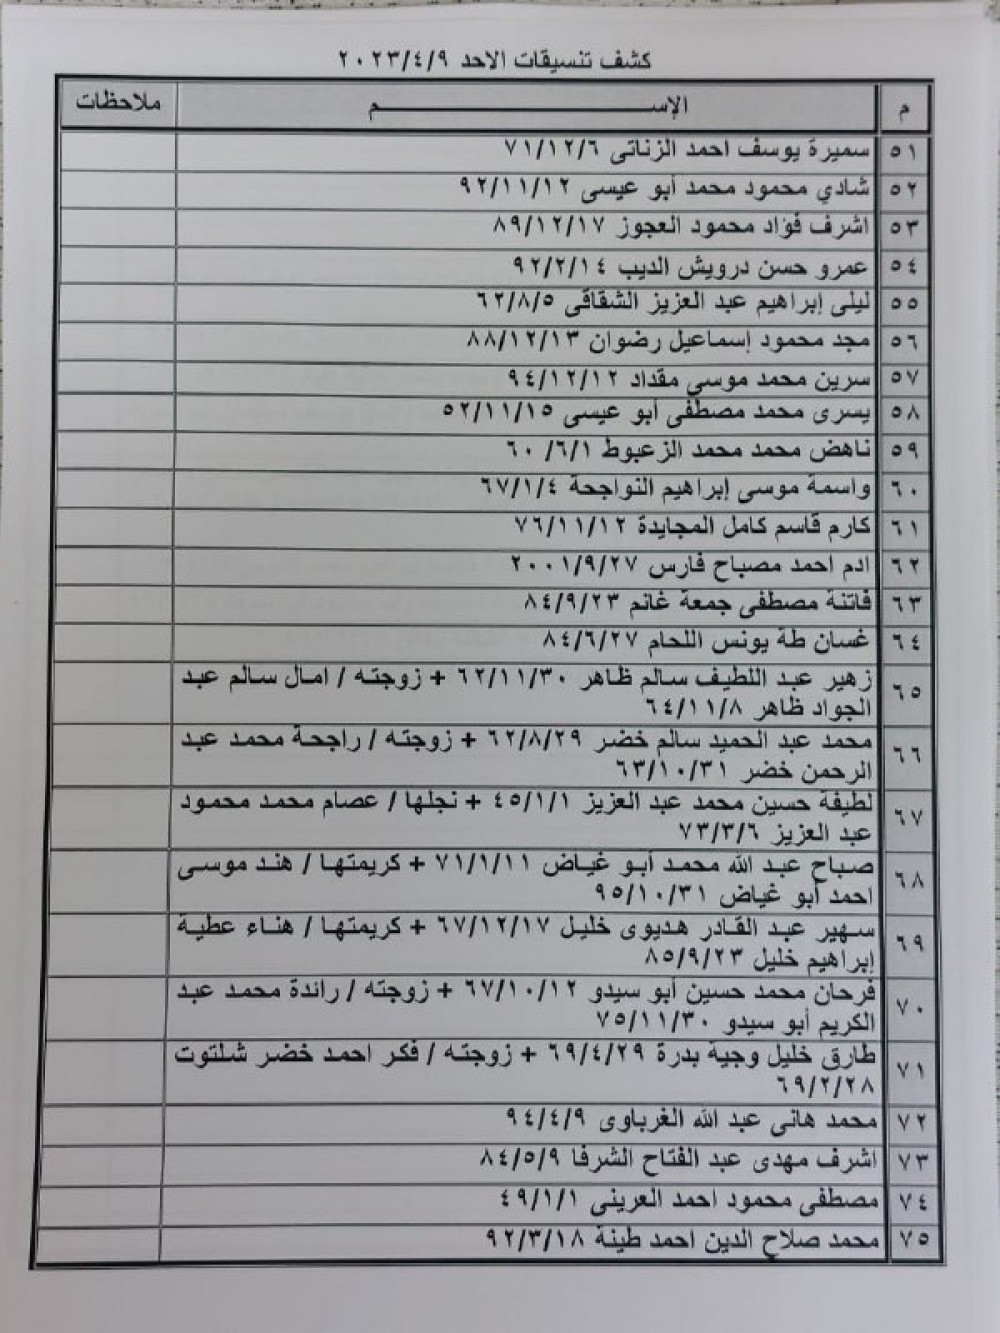 كشف تنسيقات الاحد ٢٠٢٣/٤/٩
م الإســـــــــم ملاحظات
٥١ سميرة يوسف احمد الزناتى ٧١/١٢/٦
٥٢ شادي محمود محمد أبو عيسى ٩٢/١١/١٢
٥٣ اشرف فؤاد محمود العجوز ٨٩/١٢/١٧
٥٤ عمرو حسن درويش الديب ٩٢/٢/١٤
٥٥ ليلى إبراهيم عبد العزيز الشقاقى ٦٢/٨/٥
٥٦ مجد محمود إسماعيل رضوان ٨٨/١٢/١٣
٥٧ سرين محمد موسى مقداد ٩٤/١٢/١٢
٥٨ يسرى محمد مصطفى أبو عيسى ٥٢/١١/١٥
٥٩ ناهض محمد محمد الزعبوط ٦٠/٦/١
٦٠ واسمة موسى إبراهيم النواجحة ٦٧/١/٤
٦١ كارم قاسم كامل المجايدة ٧٦/١١/١٢
٦٢ ادم احمد مصباح فارس ٢٠٠١/٩/٢٧
٦٣ فاتنة مصطفى جمعة غانم ٨٤/٩/٢٣
٦٤ غسان طة يونس اللحام ٨٤/٦/٢٧
٦٥ زهير عبد اللطيف سالم ظاهر ٦٢/١١/٣٠ + زوجته / امال سالم عبد
الجواد ظاهر ٦٤/١١/٨
٦٦ محمد عبد الحميد سالم خضر ٦٢/٨/٢٩ + زوجته / راجحة محمد عبد
الرحمن خضر ٦٣/١٠/٣١
٦٧ لطيفة حسين محمد عبد العزيز ٤٥/١/١ + نجلها / عصام محمد محمود
عبد العزيز ٧٣/٣/٦
٦٨ صباح عبد الله محمد أبو غياض ٧١/١/١١ + كريمتها / هند موسى
احمد أبو غياض ٩٥/١٠/٣١
٦٩ سهير عبد القادر هديوى خليل ٦٧/١٢/١٧ + كريمتها / هناء عطية
إبراهيم خليل ٨٥/٩/٢٣
٧٠ فرحان محمد حسين أبو سيدو ٦٧/١٠/١٢ + زوجته / رائدة محمد عبد
الكريم أبو سيدو ٧٥/١١/٣٠
٧١ طارق خليل وجية بدرة ٦٩/٤/٢٩ + زوجته / فكر احمد خضر شلتوت
٦٩/٢/٢٨
٧٢ محمد هانى عبد الله الغرباوى ٩٤/٤/٩
٧٣ اشرف مهدى عبد الفتاح الشرفا ٨٤/٥/٩
٧٤ مصطفى محمود احمد العرينى ٤٩/١/١
٧٥ محمد صلاح الدين احمد طينة ٩٢/٣/١٨